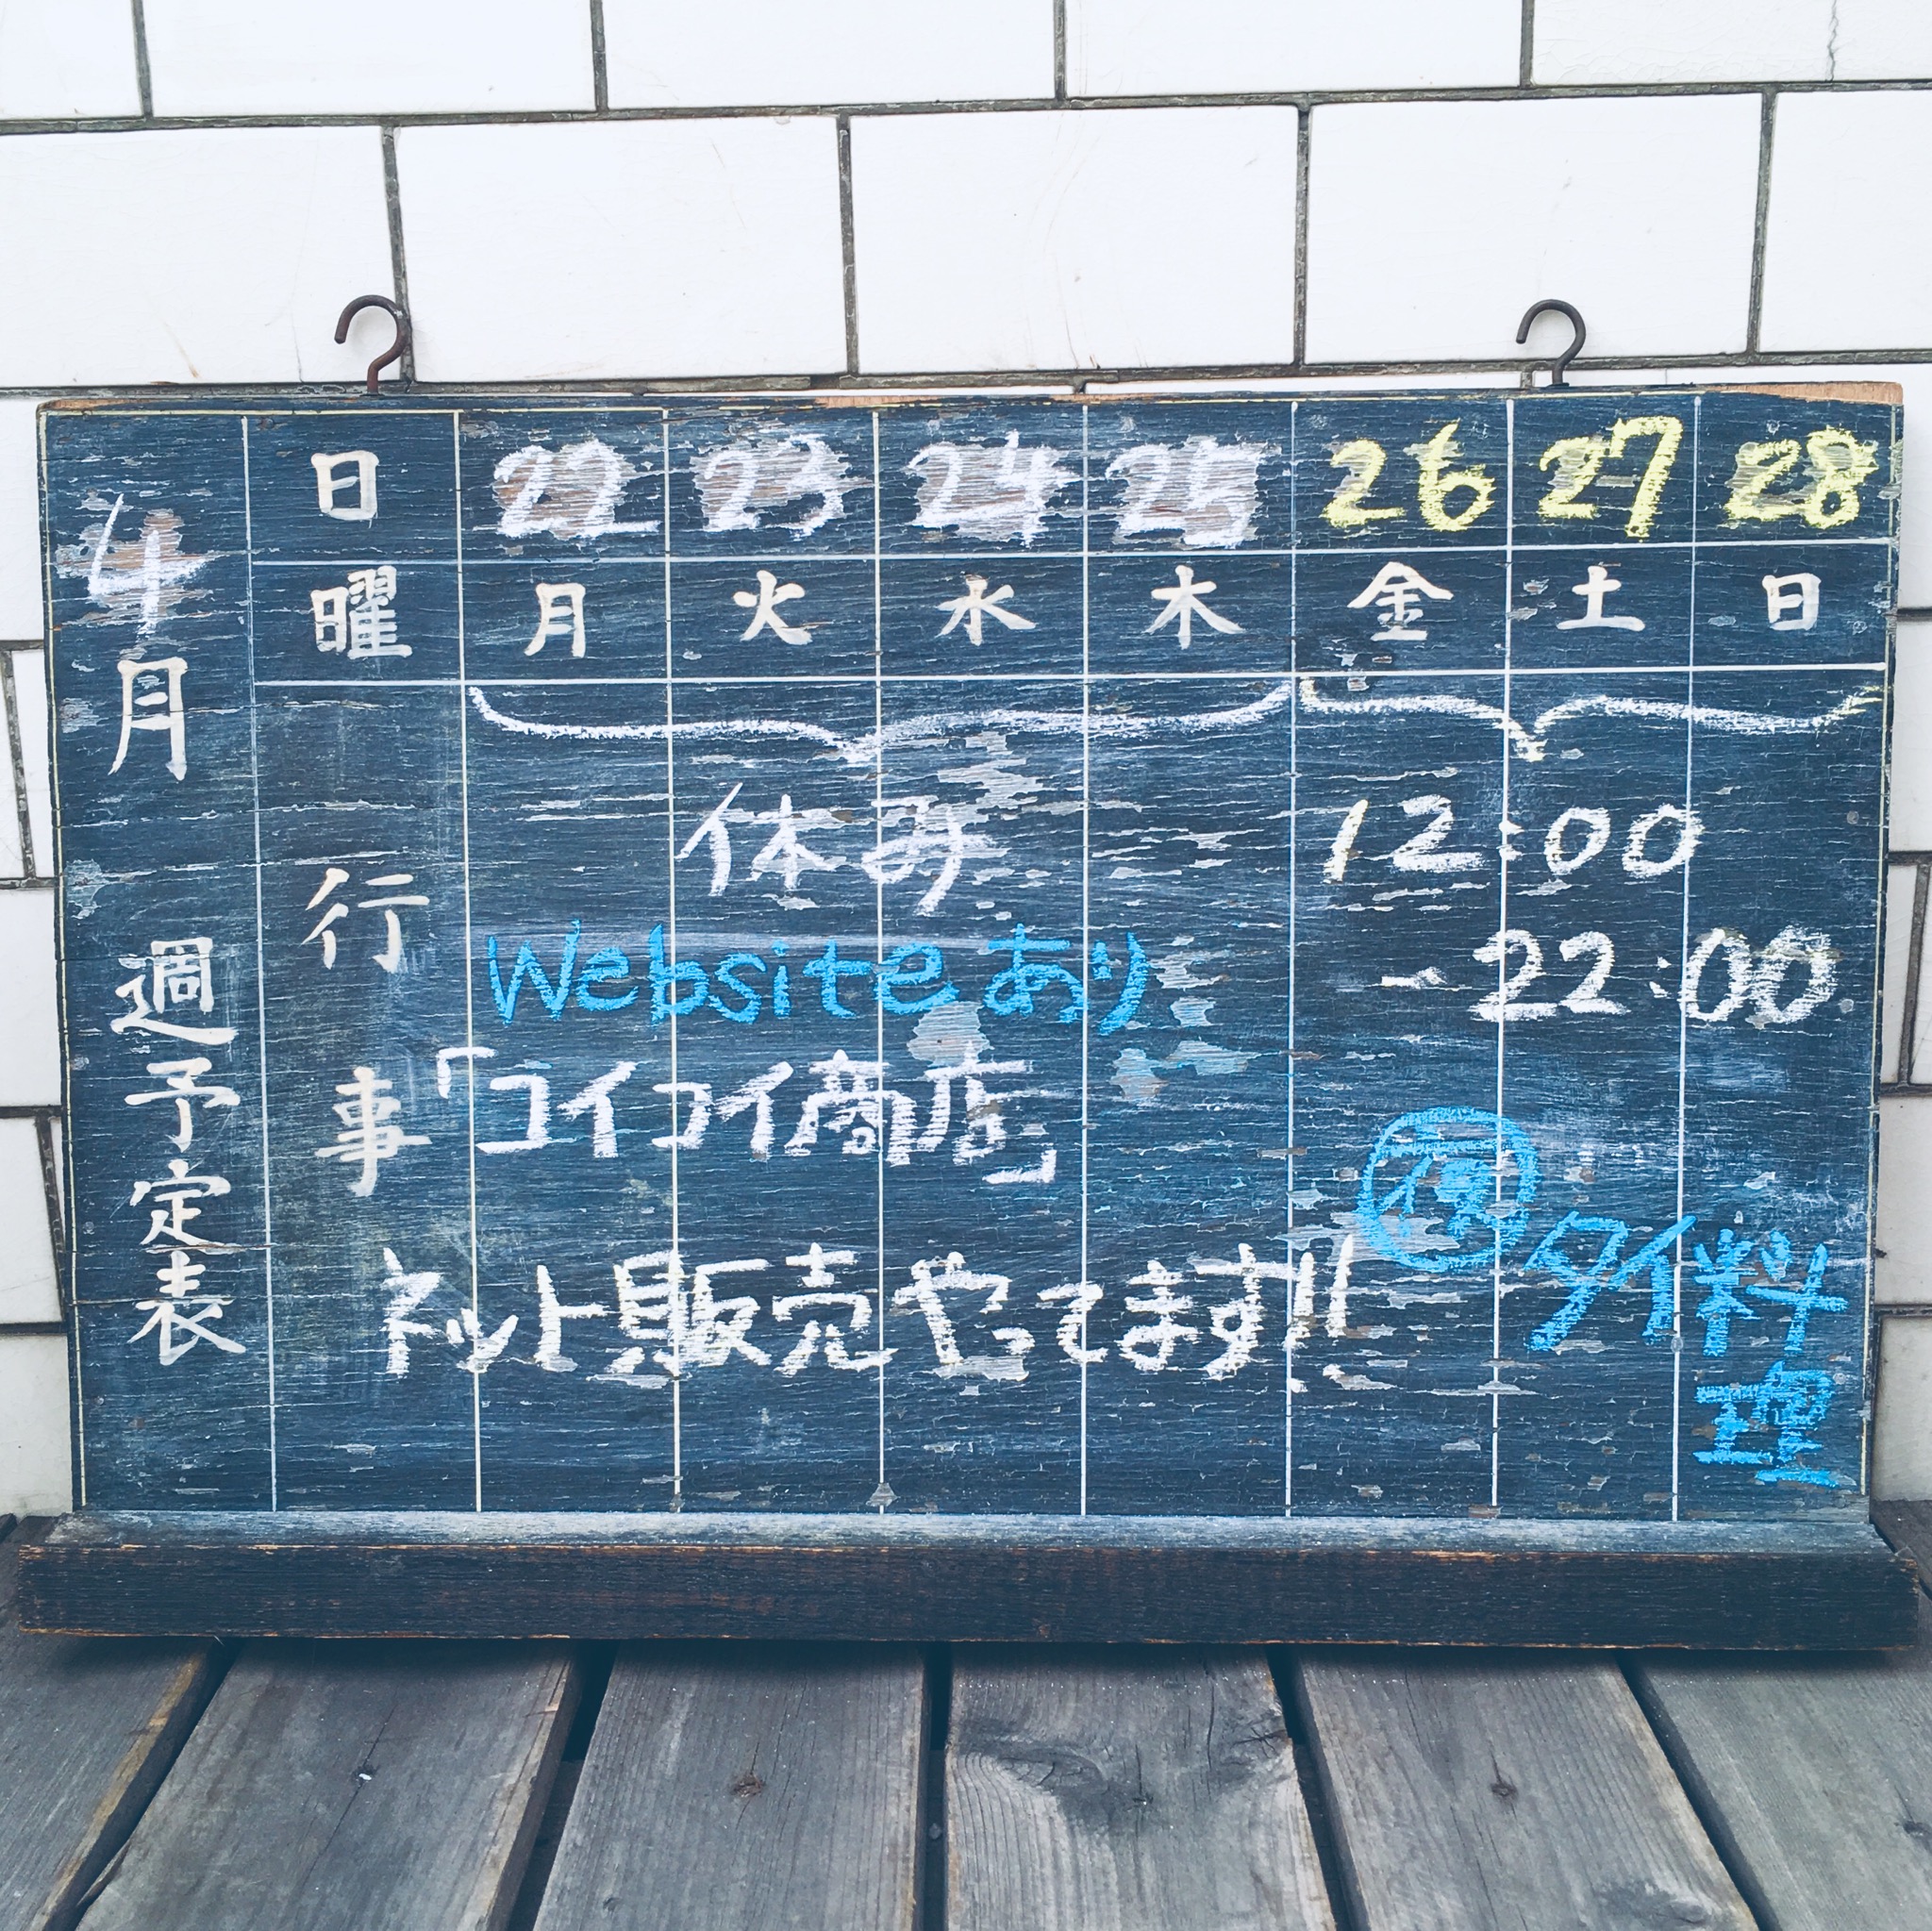 4月
週予定表
日 22 23 24 25 26 27 28
曜 月 火 水 木 金 土 日
行事
休み
Websiteあり
「コイコイ商店」
ネット販売やってます!!
12:00
-22:00
夜
タイ料
理